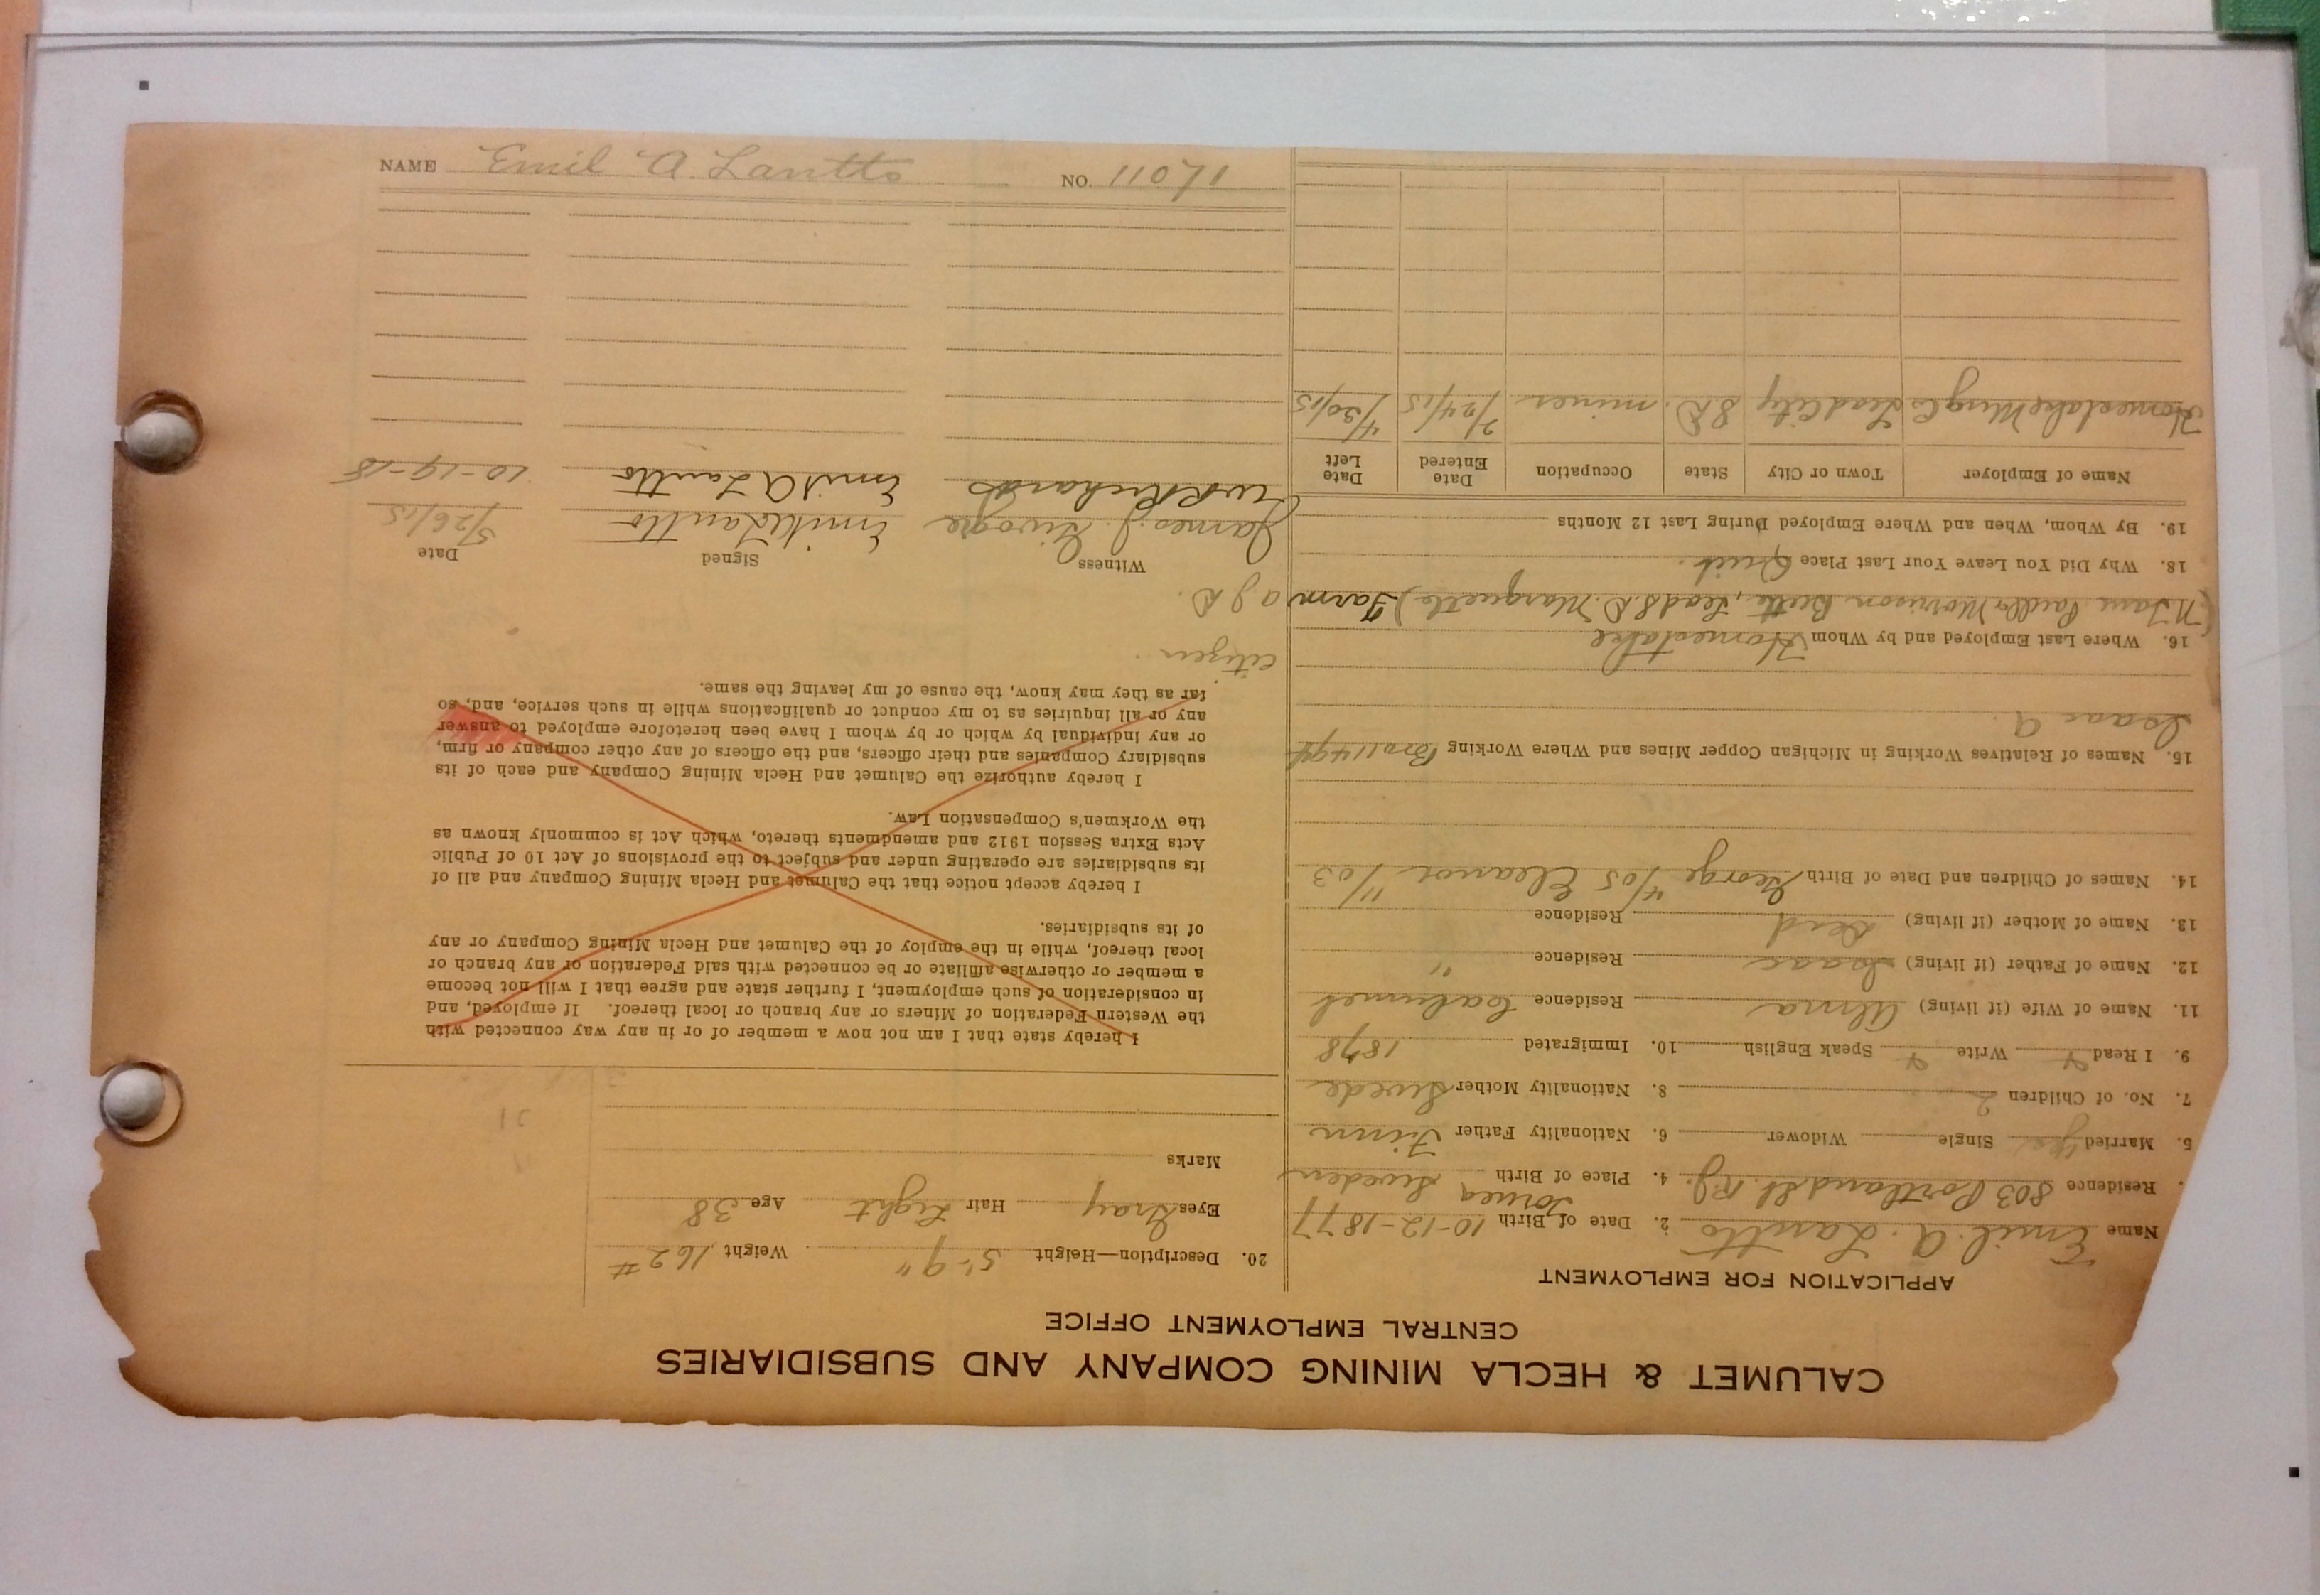 CALUMET & HECLA MINING COMPANY AND SUBSIDIARIES
CENTRAL EMPLOYMENT OFFICE
APPLICATION FOR EMPLOYMENT
Name Emil. A. Lantto 2. Date of Birth 10-12-1877
Residence 803 Portland St. R.J. 4. Place of Birth Tornea Sweden
5. Married yes Single Widower 6. Nationality Father Finn
7. No. of Children 2 8. Nationality Mother Swede
9. I Read Y Write Y Speak English 10. Immigrated 1878
11. Name of Wife (if living) Alma Residence Calumet
12. Name of Father (if living) Isaac Residence "
13. Name of Mother (if living) Dead Residence
14. Names of Children and Date of Birth George 4/05 Eleanor 11/03
15. Names of Relatives Working in Michigan Copper Mines and Where Working Bro 11494
Isaac A.
16. Where Last Employed and by Whom Homestake
(N. Tam Morrison Butte, Lead S.D. Marquette) Farm
18. Why Did You Leave Your Last Place Quit.
19. By Whom, When and Where Employed During Last 12 Months
Name of Employer Town or City State Occupation Date Entered Date Left
Homestake Mng Co Lead City S.D. miner 2/24/15 4/30/15
20. Description—Height 5'-9" Weight 162#
Eyes Gray Hair Light Age 38
Marks
I hereby state that I am not now a member of or in any way connected with
the Western Federation of Miners or any branch or local thereof. If employed, and
in consideration of such employment, I further state and agree that I will not become
a member or otherwise affiliate or be connected with said Federation or any branch or
local thereof, while in the employ of the Calumet and Hecla Mining Company or any
of its subsidiaries.
I hereby accept notice that the Calumet and Hecla Mining Company and all of
its subsidiaries are operating under and subject to the provisions of Act 10 of Public
Acts Extra Session 1912 and amendments thereto, which Act is commonly known as
the Workmen's Compensation Law.
I hereby authorize the Calumet and Hecla Mining Company and each of its
subsidiary Companies and their officers, and the officers of any other company or firm,
or any individual by which or by whom I have been heretofore employed to answer
any or all inquiries as to my conduct or qualifications while in such service, and, so
far as they may know, the cause of my leaving the same.
citizen
Witness Signed Date
James J. Emil Lantto 5/26/15
W R Richards Emil A Lantto 10-19-15
NAME Emil A. Lantto NO. 11071